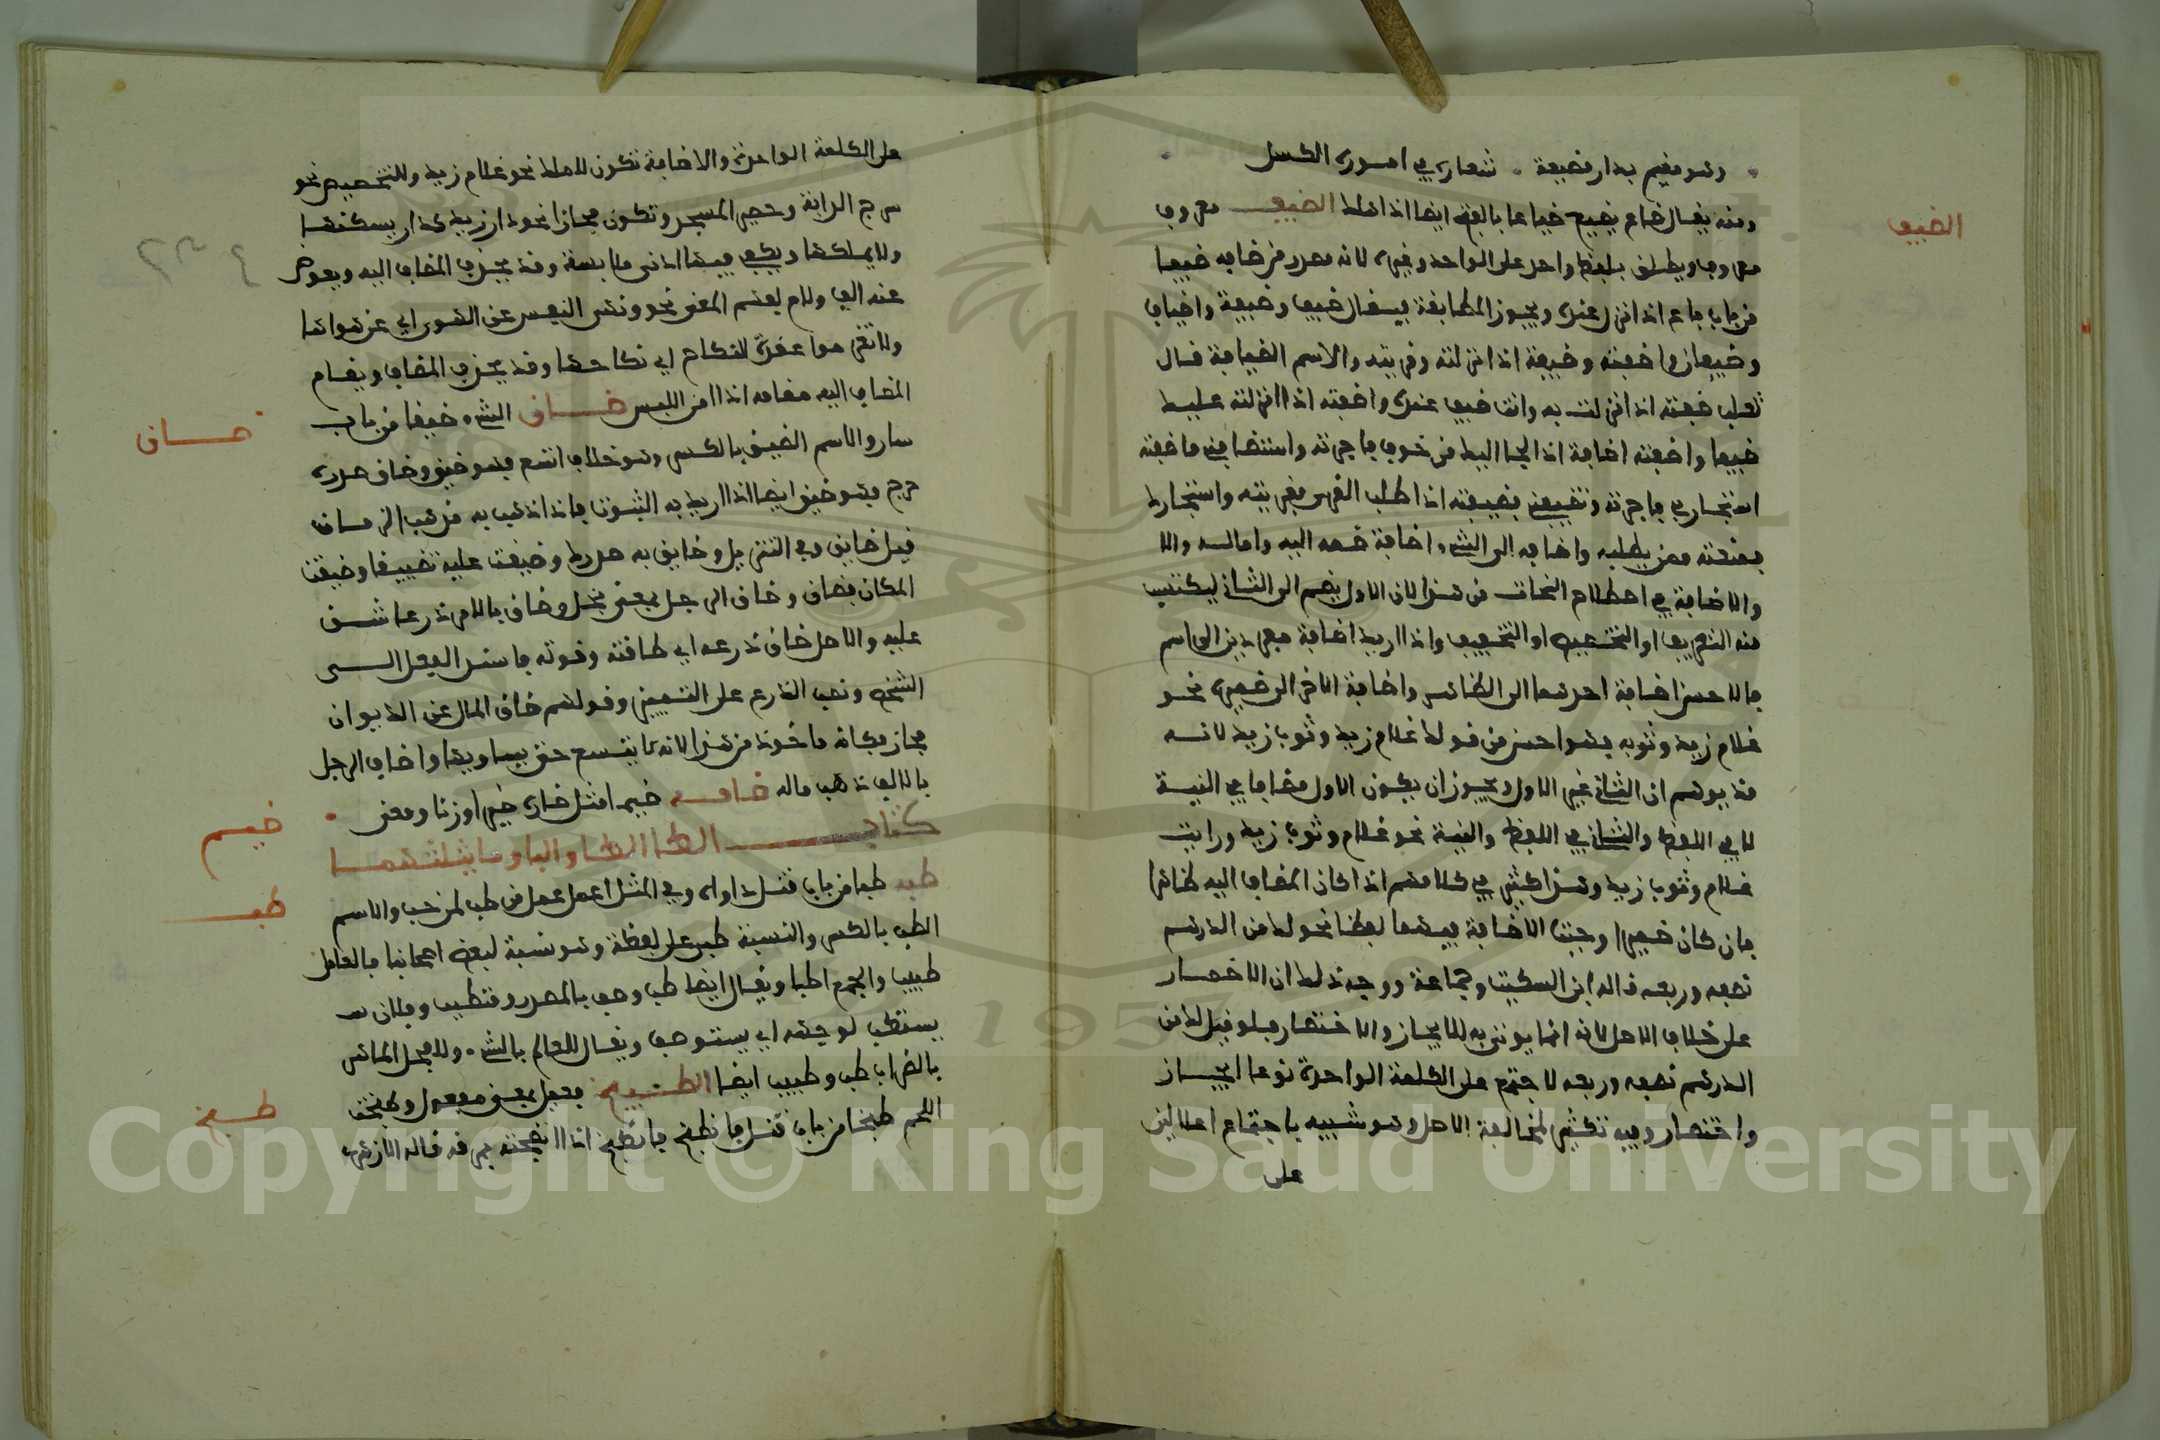 وهو مقيم بدار مضيعة . شعاره في اموره الكسل
ومنه يقال ضاع يضيع ضياعا بالفتح ايضا اذا هلك الضيف معروف
الضيف
معروف ويطلق بلفظ واحد على الواحد وغيره لانه مصدر من ضافه ضيفا
من باب باع اذا نزل عنده ويجوز المطابقة فيقال ضيف وضيفة واضياف
وضيفان واضفته وضيفته اذا انزلته وقريته والاسم الضيافة قال
ثعلب ضفته اذا نزلت به وانت ضيف عنده واضفته اذا انزلته عليك
ضيفا واضفته اضافة اذا لجا اليك من خوف فاجرته واستضافني فاضفته
استجارني فاجرته وتضيفني فضيفته اذا طلب القرى فقريته واستجارك
فمنعته ممن يطلبه واضافه الى الشيء اضافة ضمه اليه واماله والا
والاضافة في اصطلاح النحات من هذا لان الاول يضم الى الثاني ليكتسب
منه التعريف او التخصيص او التخفيف واذا اريد اضافة مفردين الى اسم
فالاحسن اضافة احدهما الى الظاهر واضافة الاخر الى ضميره نحو
غلام زيد وثوبه فهو احسن من قولك غلام زيد وثوب زيد لانه
قد يوهم ان الثاني غير الاول ويجوز ان يكون الاول مضافا في النية
لا في اللفظ والثاني في اللفظ والنية نحو غلام وثوب زيد ورايت
غلام وثوب زيد وهذا كثير في كلامهم اذا كان المضاف اليه ظاهرا
فان كان ضميرا وجبت الاضافة فيهما لفظا نحو لك من الدرهم
نصفه وربعه قاله ابن السكيت وجماعة ووجه ذلك ان الاضمار
على خلاف الاصل لانه انما يوتى به للايجاز والاختصار فلو قيل لك من
الدرهم نصفه وربعه لاجتمع على الكلمة الواحدة نوعا ايجاز
واختصار وفيه تكثير لمخالفة الاصل وهو شبيه باجتماع اعلالين
على
على الكلمة الواحدة والاضافة تكون للملك نحو غلام زيد وللتخصيص نحو
سرج الدابة وحصير المسجد وتكون مجازا نحو دار زيد لدار يسكنها
ولا يملكها ويكفي فيها ادنى ملابسة وقد يحذف المضاف اليه ويعوض
عنه الف ولام لفهم المعنى نحو ونهى النفس عن الهوى اي عن هواها
ولا تعزموا عقدة النكاح اي نكاحها وقد يحذف المضاف ويقام
المضاف اليه مقامه اذا امن اللبس ضاق الشيء ضيقا من باب
ضاق
سار والاسم الضيق بالكسر وهو خلاف اتسع فهو ضيق وضاق صدره
حرج فهو ضيق ايضا اذا اريد به الثبوت فاذا ذهب به مذهب الزمان
قيل ضايق وفي التنزيل وضايق به صدرك وضيقت عليه تضييقا وضيقت
المكان فضاق وضاق الرجل بمعنى بخل وضاق بالامر ذرعا شق
عليه والاصل ضاق ذرعه اي طاقته وقوته فاسند الفعل الى
الشخص ونصب الذرع على التمييز وقولهم ضاق المال عن الديوان
مجاز وكانه ماخوذ من هذا لانه لا يتسع حتى يساويها واضاق الرجل
بالالف ذهب ماله ضامه ضيما مثل ضاره ضيرا وزنا ومعنى .
ضيم
كتاب الطا الطا والبا وما يثلثهما
طبه طبا من باب قتل داواه وفي المثل اعمل عمل من طب لمن حب والاسم
طب
الطب بالكسر والنسبة طبي على لفظه وهو نسبة لبعض اصحابنا فالفاعل
طبيب والجمع اطبا ويقال ايضا طب وصف بالمصدر ومتطبب وفلان
يستطب لوجعه اي يستوصف ويقال للعالم بالشيء وللفحل الماهر
بالضراب طب وطبيب ايضا الطبيخ فعيل بمعنى مفعول وطبخت
طبخ
اللحم طبخا من باب قتل فانطبخ فاطبخ اذا انضجته بمرقه قاله الازهري
٢٣٤
1957
Copyright © King Saud University